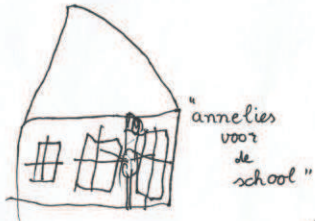 "annelies
voor
de
school"